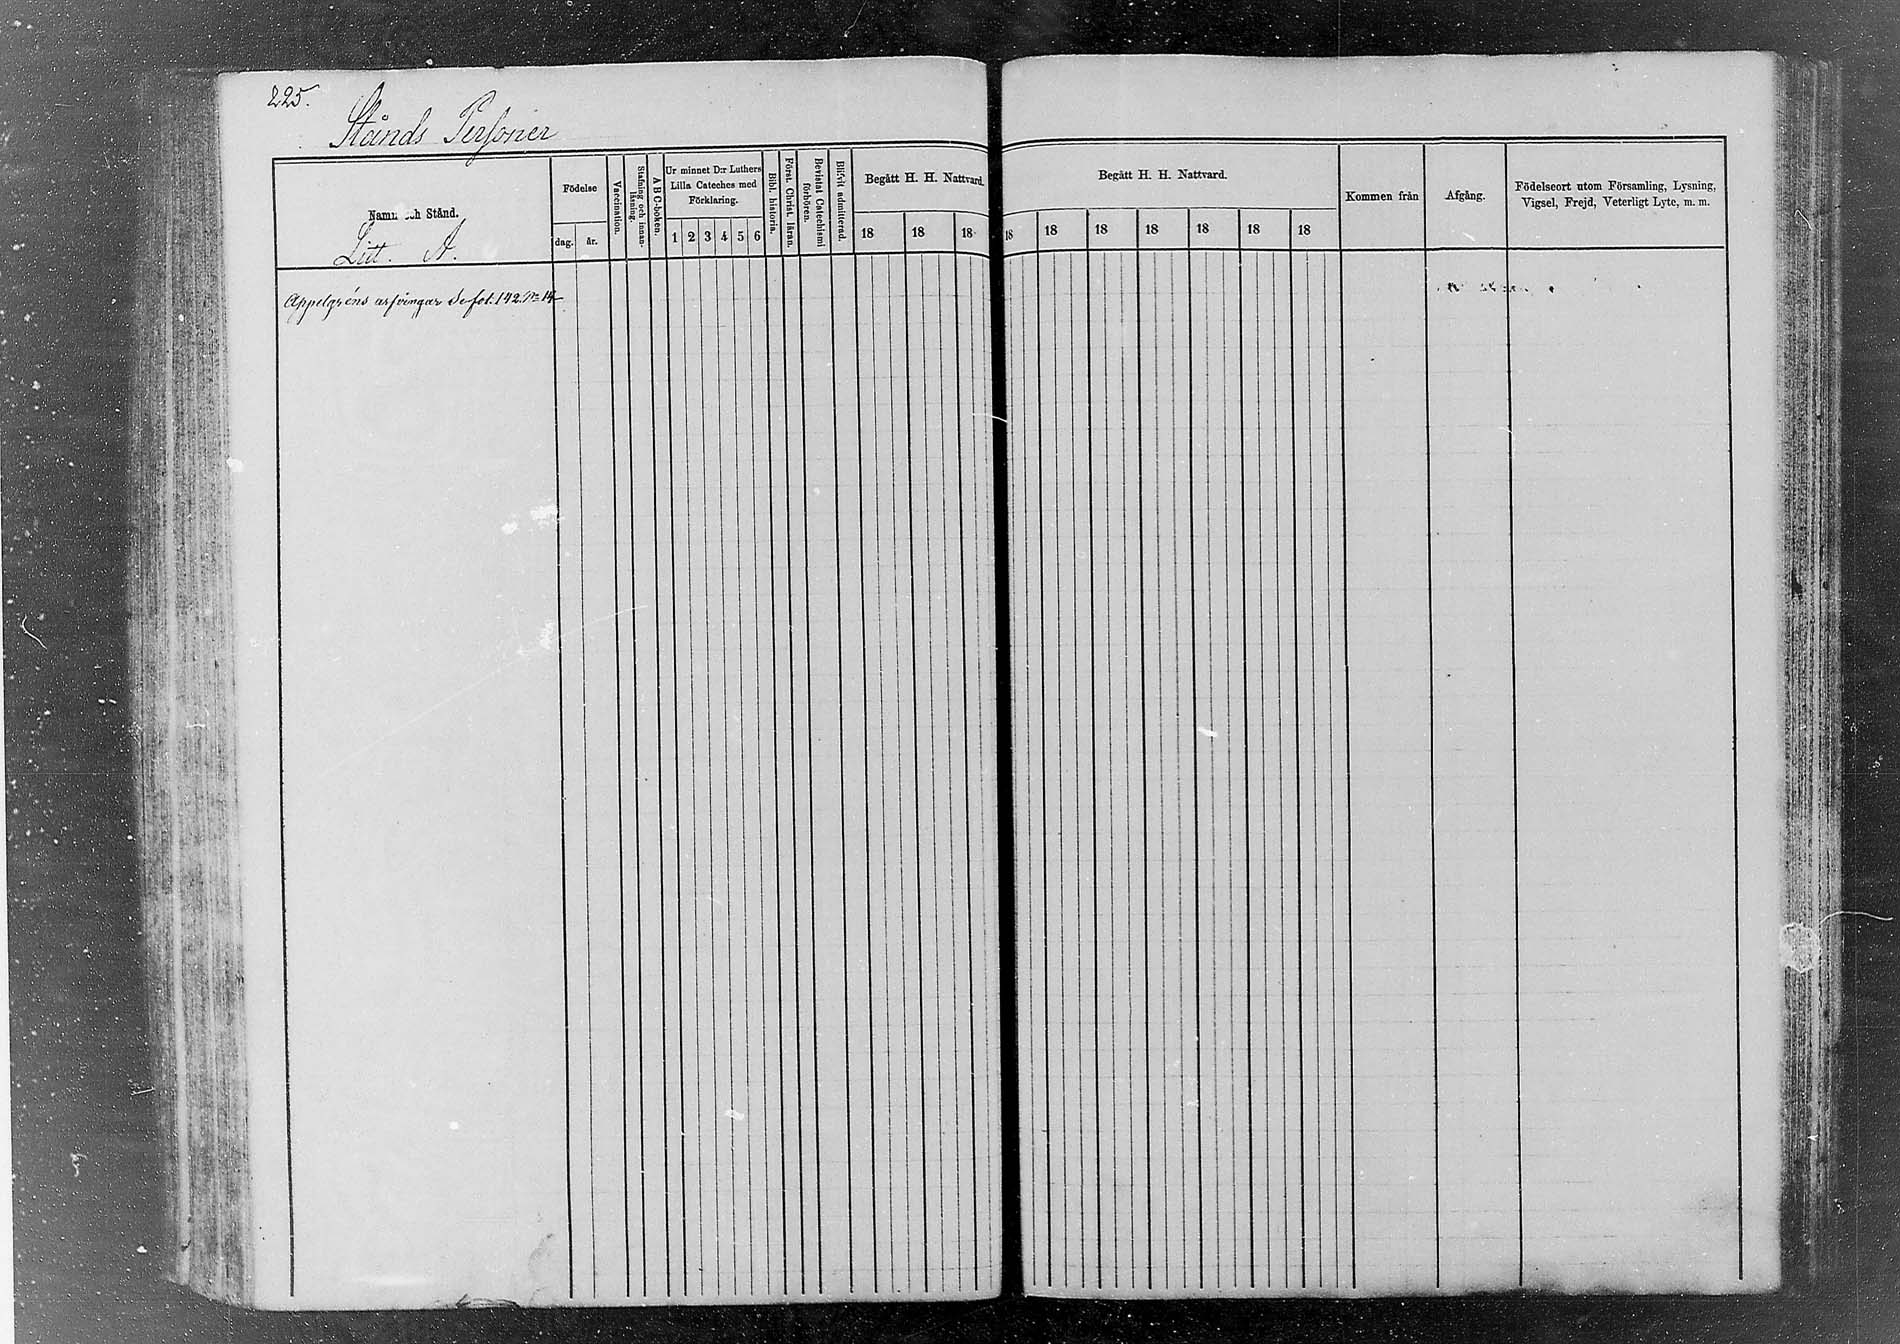 225.
Stånds Personer
Namn och Stånd.
Litt. A.
Födelse
dag. år.
Vaccination.
Stafning och innan-
läsning.
A B C-boken.
Ur minnet D:r Luthers
Lilla Cateches med
Förklaring.
1 2 3 4 5 6
Bibl. historia.
Först. Christ. läran.
Bevistat Catechismi
förhören.
Blifvit admitterad.
Begått H. H. Nattvard.
18 18 18
Begått H. H. Nattvard.
18 18 18 18 18 18 18
Kommen från
Afgång.
Födelseort utom Församling, Lysning,
Vigsel, Frejd, Veterligt Lyte, m. m.
Appelgréns arfvingar Se fol. 142. No 14